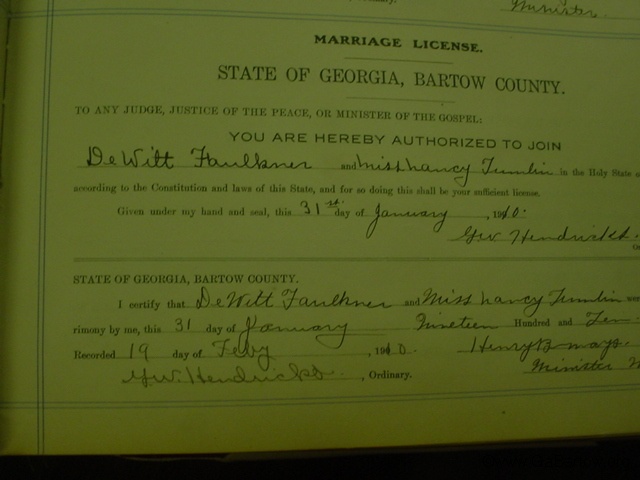 Minister.
MARRIAGE LICENSE.
STATE OF GEORGIA, BARTOW COUNTY.
TO ANY JUDGE, JUSTICE OF THE PEACE, OR MINISTER OF THE GOSPEL:
YOU ARE HEREBY AUTHORIZED TO JOIN
DeWitt Faulkner and Miss Nancy Tumlin in the Holy State
according to the Constitution and laws of this State, and for so doing this shall be your sufficient license.
Given under my hand and seal, this 31st day of January, 1910.
G.W. Hendricks.
STATE OF GEORGIA, BARTOW COUNTY.
I certify that DeWitt Faulkner and Miss Nancy Tumlin
rimony by me, this 31 day of January Nineteen Hundred and Ten
Recorded 19 day of Feby, 1910. Henry B Mays.
G.W. Hendricks., Ordinary. Minister